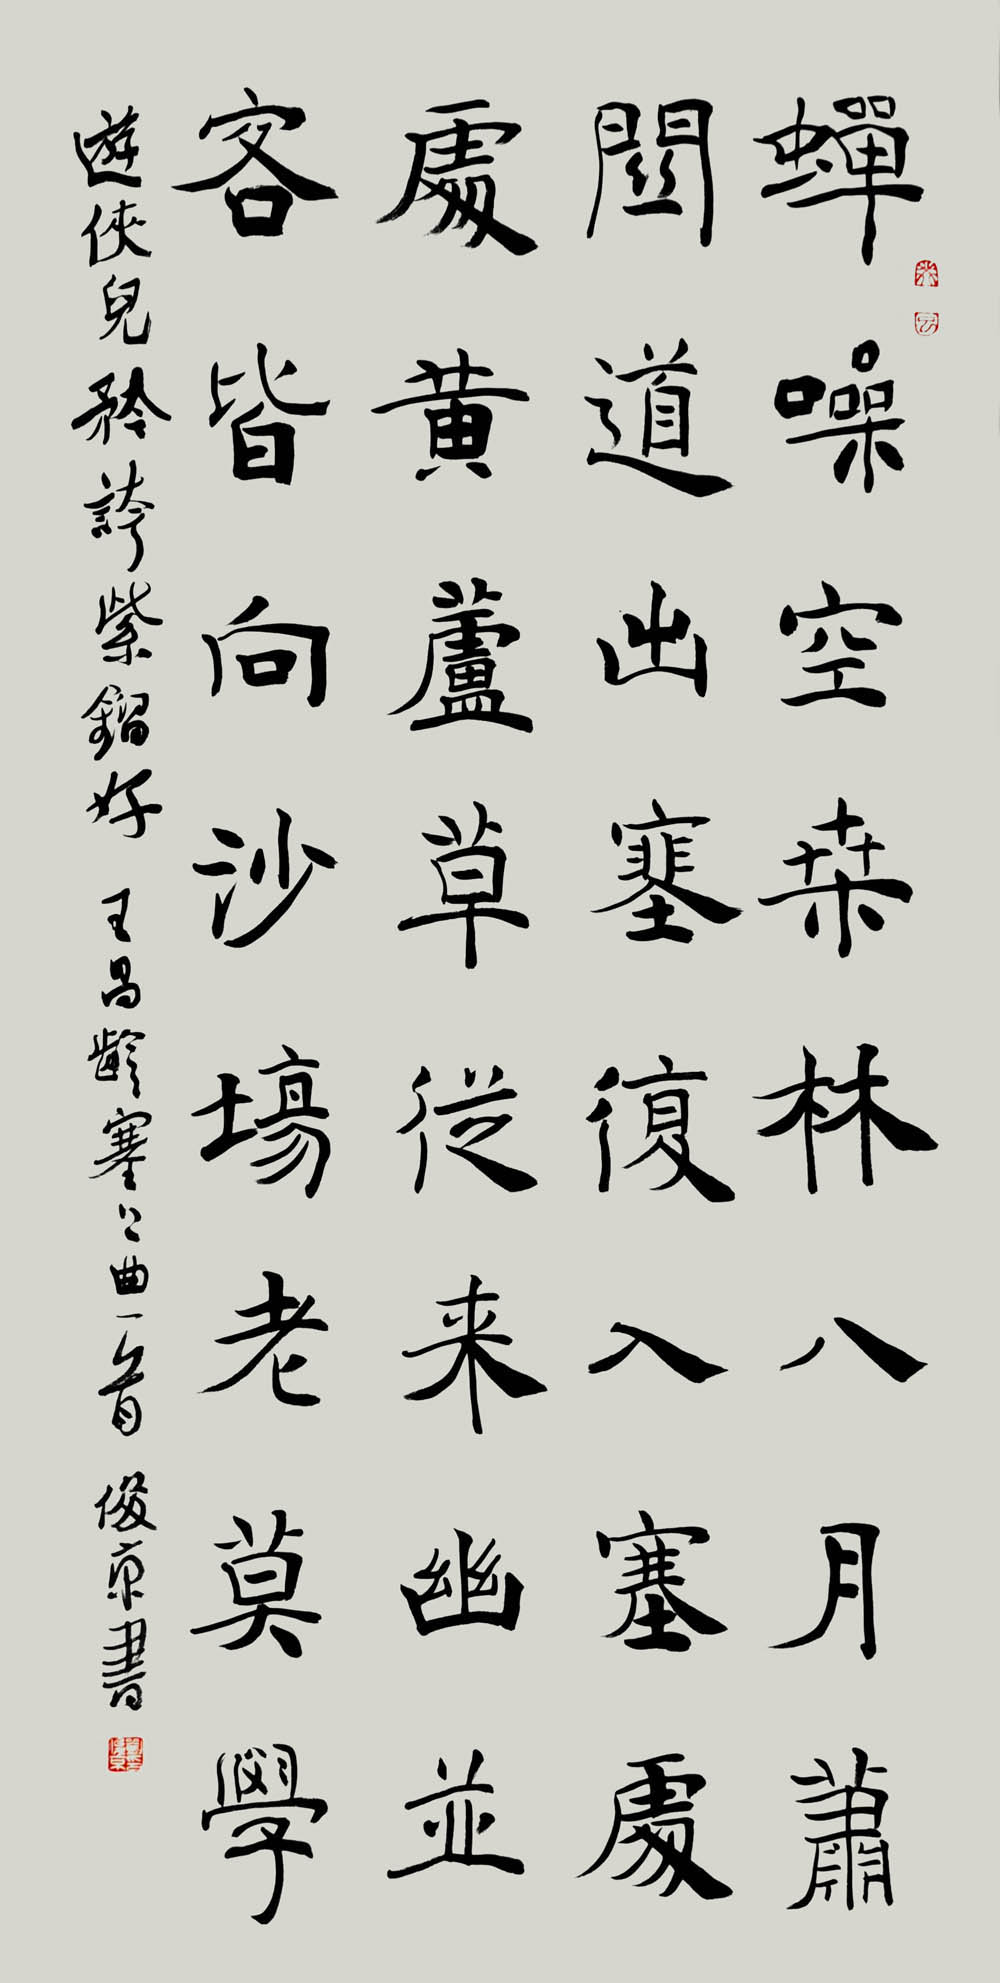 蟬噪空桒林八月蕭
關道出塞復入塞處
處黃蘆草從来幽並
客皆向沙場老莫學
遊俠兒矜誇紫鎦好 王昌齡塞上曲一首 俊京書